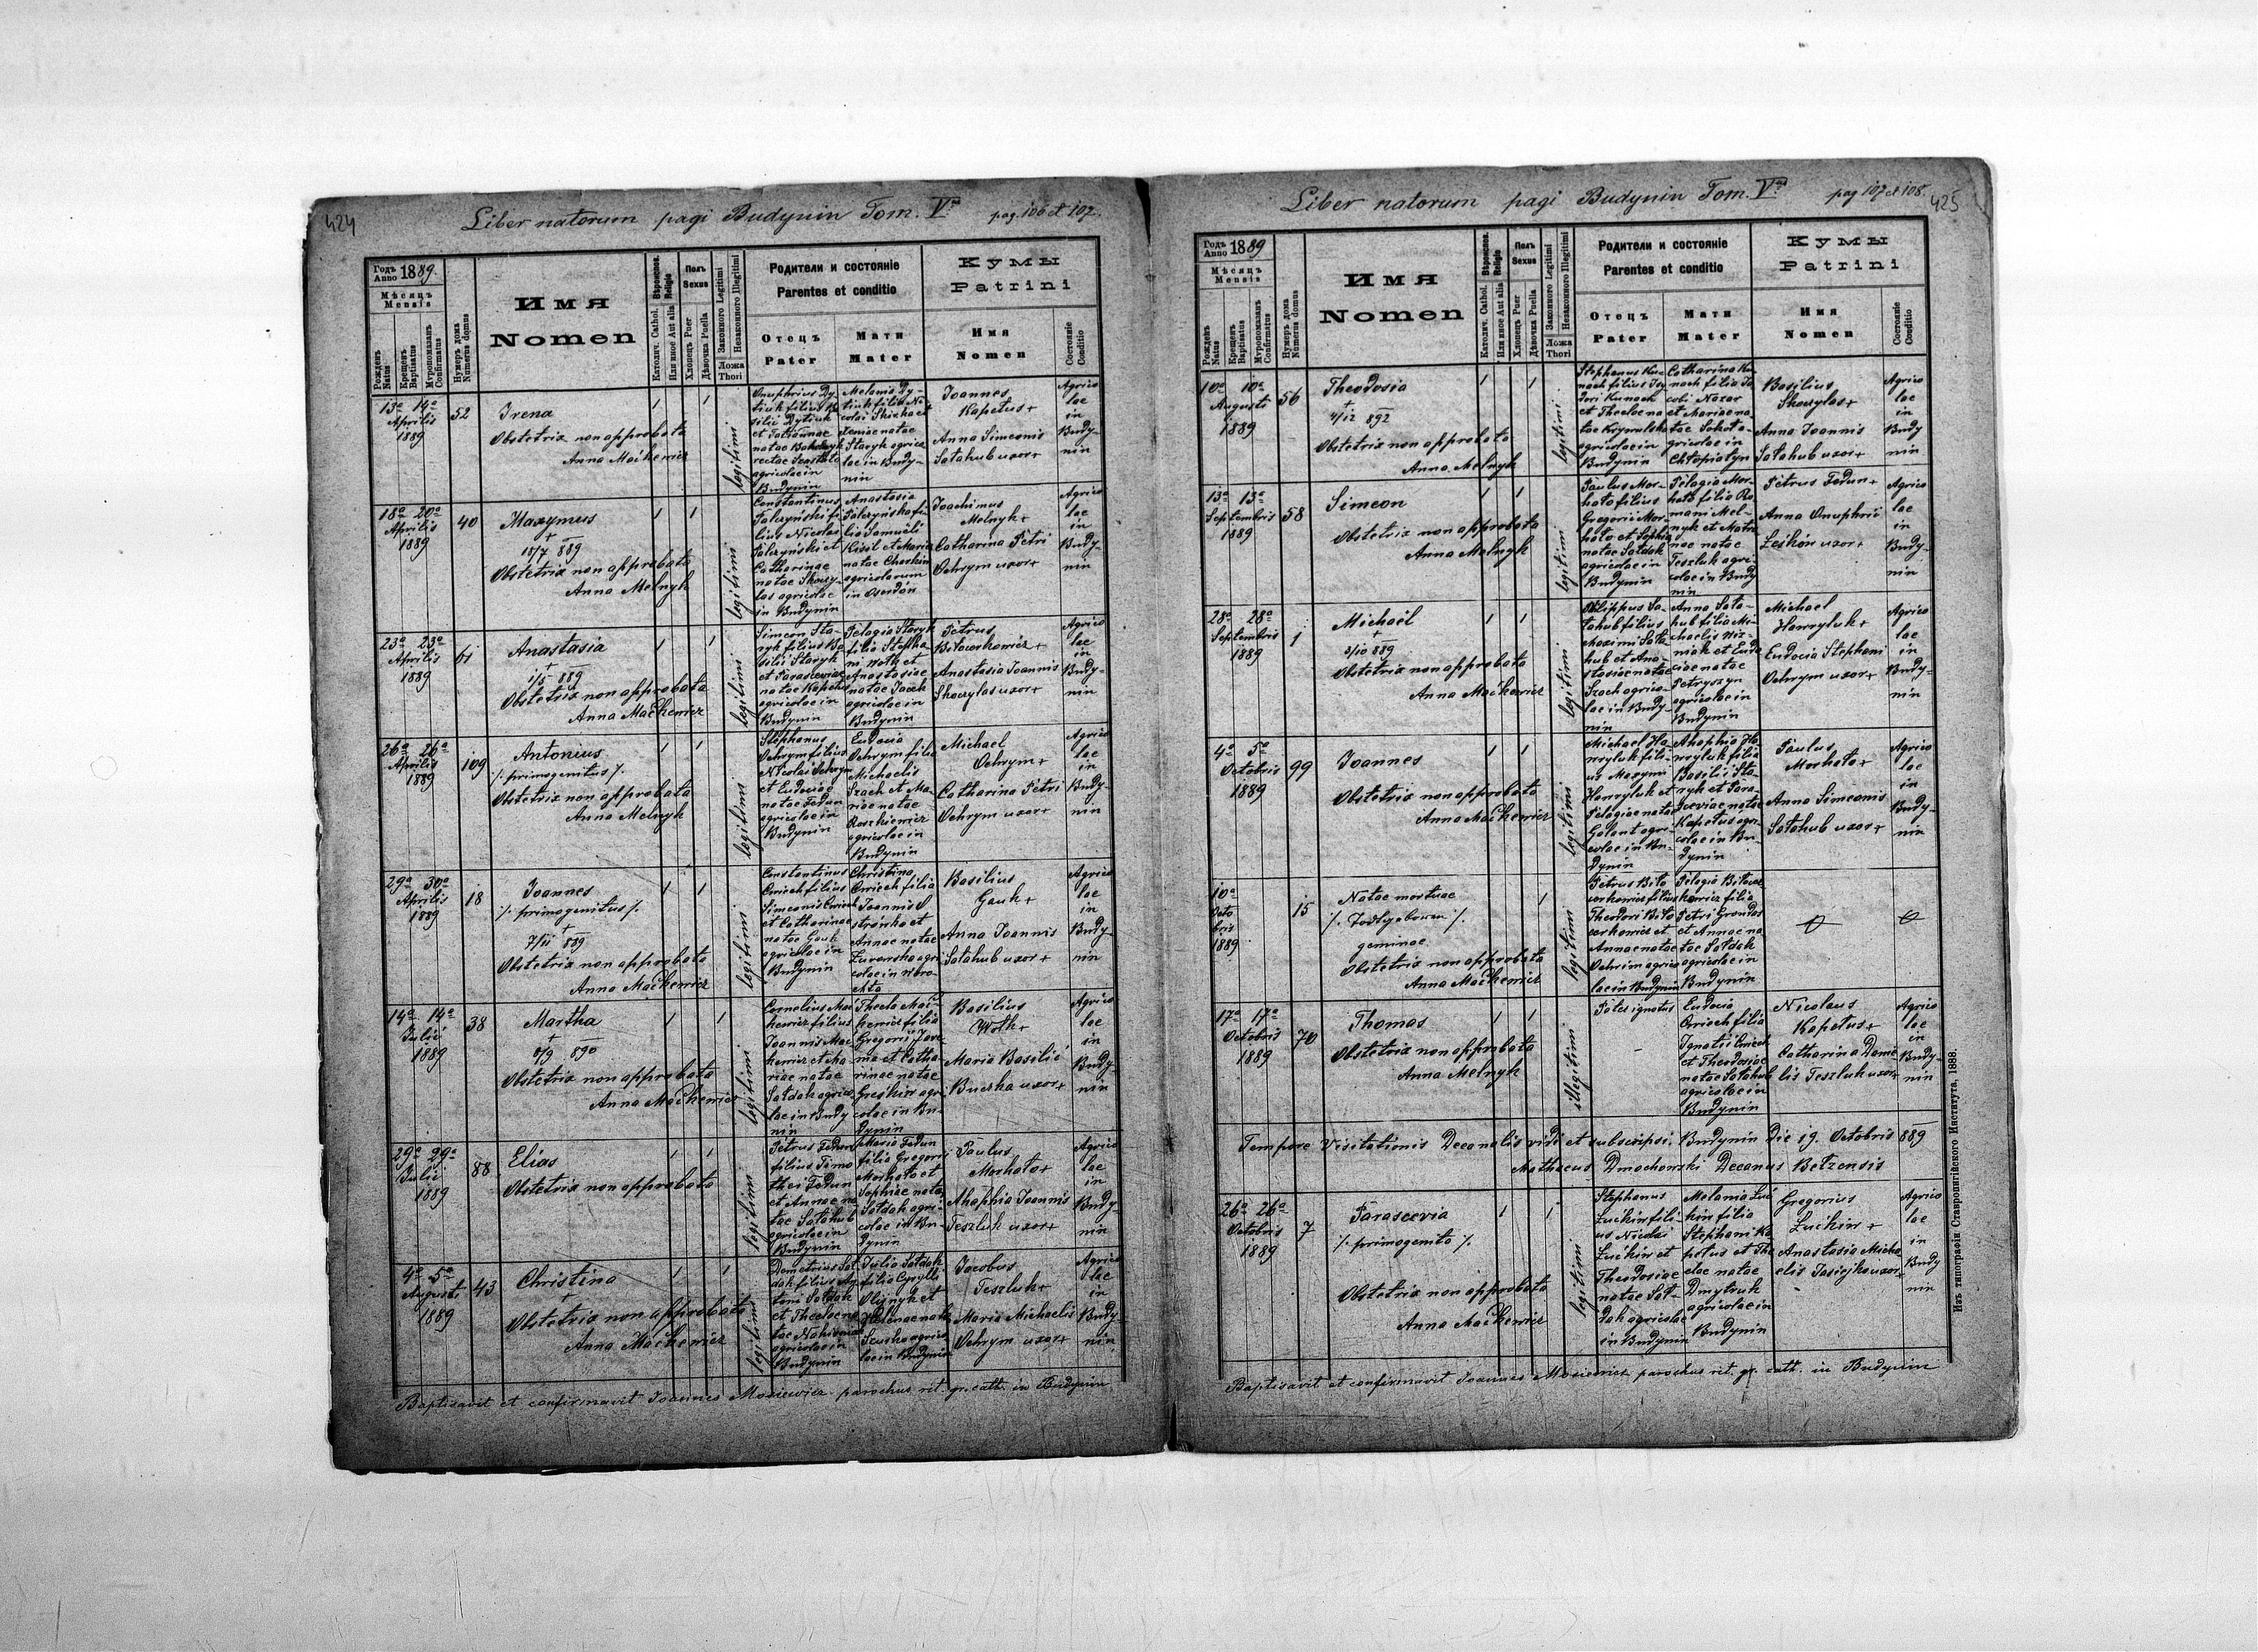 424
Liber natorum pagi Budynin Tom. Vus pag. 106 et 107.
Годъ Anno 1889.
Мѣсяцъ
Mensis
Рожденъ
Natus
Крещенъ
Baptisatus
Муропомазанъ
Confirmatus
Нумеръ дома
Numerus domus
Имя
Nomen
Вѣроиспов.
Religio
Католич. Cathol.
Или иное Aut alia
Полъ
Sexus
Хлопецъ Puer
Дѣвочка Puella
Законного Legitimi
Незаконного Illegitimi
Ложа
Thori
Родители и состоянiе
Parentes et conditio
Отецъ
Pater
Мати
Mater
Кумы
Patrini
Имя
Nomen
Состоянiе
Conditio
13a 14a
Aprilis
1889
52
Irena
Obstetrix non approbata
Anna Maćkewicz
legitimi
Onuphrius Dy-
tiuk filius Ba
silii Dytiuk
et Tatiannae
agricolae in
Budynin
Melania Dy-
tiuk filia Ni
colai
Xeniae natae
Staryk agrico
lae in Budy-
nin
Joannes
Kapetus+
Anna Simeonis
Sałahub uxor+
Agrico
lae
in
Budy-
nin
18a 20a
Aprilis
1889
40
Maxymus
+
18/7 889
Obstetrix non approbata
Anna Melnyk
legitimi
Constantinus
Palczyński fi
lius Nicolai
Palczyński et
Catharinae
natae Skoczy-
las agricolae
in Budynin
Anastasia
Palczyńska fi-
lia Samueli
Kisil et Maria
natae
agricolarum
in Oserdów
Joachimus
Melnyk+
Catharina Petri
Ochrym uxor+
Agrico
lae
in
Budy-
nin
23a 23a
Aprilis
1889
61
Anastasia
+
1/5 889
Obstetrix non approbata
Anna Maćkewicz
legitimi
Simeon Sta-
ryk filius Ba
silii Staryk
et Parasceviae
natae Kapetus
agricolae in
Budynin
Pelagia Staryk
filia Stepha
ni Woth et
Anastasiae
natae Jacek
agricolae in
Budynin
Petrus
Biłowerkowicz+
Anastasia Joannis
Skoczylas uxor+
Agrico
lae
in
Budy-
nin
26a 26a
Aprilis
1889
109
Antonius
/. primogenitus /.
Obstetrix non approbata
Anna Melnyk
legitimi
Stephanus
Ochrym filius
Nicolai Ochrym
et Eudociae
natae Fedun
agricolae in
Budynin
Eudocia
Ochrym filia
Michaelis
Szach et Ma-
riae natae
Raszkiewicz
agricolae in
Budynin
Michael
Ochrym+
Catharina Petri
Ochrym uxor+
Agrico
lae
in
Budy-
nin
29a 30a
Aprilis
1889
18
Joannes
/. primogenitus /.
+
7/11 889
Obstetrix non approbata
Anna Maćkewicz
legitimi
Constantinus
filius
Simeonis
et Catharinae
natae Gauk
agricolae in
Budynin
Christina
filia
Joannis
et
Annae natae
agri
colae in
Basilius
Gauk+
Anna Joannis
Sałahub uxor+
Agrico
lae
in
Budy-
nin
14a 14a
Julii
1889
38
Martha
+
8/9 890
Obstetrix non approbata
Anna Maćkewicz
legitimi
Cornelius Mać
kewicz filius
Joannis Mać-
kewicz et Ma-
riae natae
Sałdak agrico
lae in Budy
nin
Thecla Mać-
kewicz filia
Gregorii Jare-
ma et Catha-
rinae natae
agri-
colae in Bu-
dynin
Basilius
Woth+
Maria Basilii
Buczka uxor+
Agrico
lae
in
Budy-
nin
29a 29a
Julii
1889
88
Elias
Obstetrix non approbata
legitimi
Petrus Fedun
filius Timo
thei Fedun
et Annae na
tae Sałahub
agricolae in
Budynin
Maria Fedun
filia Gregorii
Morkato et
Sophiae natae
Sałdak agri-
colae in Bu-
dynin
Paulus
Morkato+
Ahaphia Joannis
Teszluk uxor+
Agrico
lae
in
Budy-
nin
4a 5a
Augusti
1889
43
Christina
+
Obstetrix non approbata
Anna Maćkewicz
legitimi
Demetrius Sał-
dak filius An
toni Sałdak
et Theclae na
tae
agricolae in
Budynin
Julia Sałdak
filia Cyrylli
Olijnyk et
Helenae natae
agrico
lae in Budynin
Jacobus
Teszluk+
Maria Michaelis
Ochrym uxor+
Agrico
lae
in
Budy-
nin
Baptisavit et confirmavit Joannes Mosiewicz parochus rit. gr. cath. in Budynin
Liber natorum pagi Budynin Tom. Vus pag 107 et 108.
425
Годъ Anno 1889
Мѣсяцъ
Mensis
Рожденъ
Natus
Крещенъ
Baptisatus
Муропомазанъ
Confirmatus
Нумеръ дома
Numerus domus
Имя
Nomen
Вѣроиспов.
Religio
Католич. Cathol.
Или иное Aut alia
Полъ
Sexus
Хлопецъ Puer
Дѣвочка Puella
Законного Legitimi
Незаконного Illegitimi
Ложа
Thori
Родители и состоянiе
Parentes et conditio
Отецъ
Pater
Мати
Mater
Кумы
Patrini
Имя
Nomen
Состоянiе
Conditio
10a 10a
Augusti
1889
56
Theodosia
+
4/12 892
Obstetrix non approbata
Anna Melnyk
legitimi
Stephanus Ku-
nach filius
Kunach
et Theclae na
tae
agricolae in
Budynin
Catharina Ku
nach filia Ja
cobi Nazar
et Mariae na-
tae Sokoł a-
gricolae in
Chłopiatyn
Basilius
Skoczylas+
Anna Joannis
Sałahub uxor+
Agrico
lae
in
Budy
nin
13a 13a
Septembris
1889
58
Simeon
Obstetrix non approbata
Anna Melnyk
legitimi
Paulus Mor-
kato filius
Gregorii Mor-
kato et Sophiae
natae Sałdak
agricolae in
Budynin
Pelagia Mor-
kato filia Ro-
mani Mel-
nyk et Matro
nae natae
Teszluk agri-
colae in Budy
nin
Petrus Fedun+
Anna Onuphrii
uxor+
Agrico
lae
in
Budy-
nin
28a 28a
Septembris
1889
1
Michaël
+
3/10 889
Obstetrix non approbata
Anna Maćkewicz
legitimi
Philippus Sa-
łahub filius
Maximi Sała
hub et Ana-
stasiae natae
Szach agrico-
lae in Budy-
nin
Anna Sała-
hub filia Mi-
chaelis Woź-
niak et Eudo
ciae natae
Petryszyn
agricolae in
Budynin
Michael
Hawryluk+
Eudocia Stephani
Ochrym uxor+
Agrico
lae
in
Budy-
nin
4a 5a
Octobris
1889
99
Joannes
Obstetrix non approbata
Anna Maćkewicz
legitimi
Michael Ha-
wryluk fili-
us Maxymi
Hawryluk et
Pelagiae natae
Galant agri-
colae in Bu-
dynin
Ahaphia Ha
wryluk filia
Basilii Sta-
ryk et Para-
sceviae natae
Kapetus agri-
colae in Bu-
dynin
Paulus
Morkato+
Anna Simeonis
Sałahub uxor+
Agrico
lae
in
Budy-
nin
10a
Octo
bris
1889
15
Natae mortuae
geminae
Obstetrix non approbata
Anna Maćkewicz
legitimi
Petrus Biło
werkowicz filius
Theodori Biło
werkowicz et
Annae natae
Ochrim agrico
lae in Budynin
Pelagia Biłower
kowicz filia
Petri
et Annae na
tae Sałdak
agricolae in
Budynin
17a 17a
Octobris
1889
70
Thomas
Obstetrix non approbata
Anna Melnyk
illegitimi
Pater ignotus
-
Eudocia
filia
Ignatii
et Theodosiae
natae Sałahub
agricolae in
Budynin
Nicolaus
Kapetus+
Catharina Danie
lis Teszluk uxor+
Agrico
lae
in
Budy-
nin
Tempore Visitationis Decanalis vidi et subscripsi. Budynin Die 19. Octobris 889
Mathaeus Dmochowski Decanus Betzensis
26a 26a
Octobris
1889
7
Parascevia
/. primogenita /.
Obstetrix non approbata
Anna Maćkewicz
legitimi
Stephanus
Łuckin fili-
us Nicolai
Łuckin et
Theodosiae
natae Sał-
dak agricolae
in Budynin
Melania Łuc
kin filia
Stephani Ka
petus et The
clae natae
Dmytruk
agricolae in
Budynin
Gregorius
Łuckin+
Anastasia Micha
elis uxor+
Agrico
lae
in
Budy
nin
Baptisavit et confirmavit Joannes Mosiewicz parochus rit. gr. cath. in Budynin
Изъ типографiи Ставропигiйского Института, 1888.